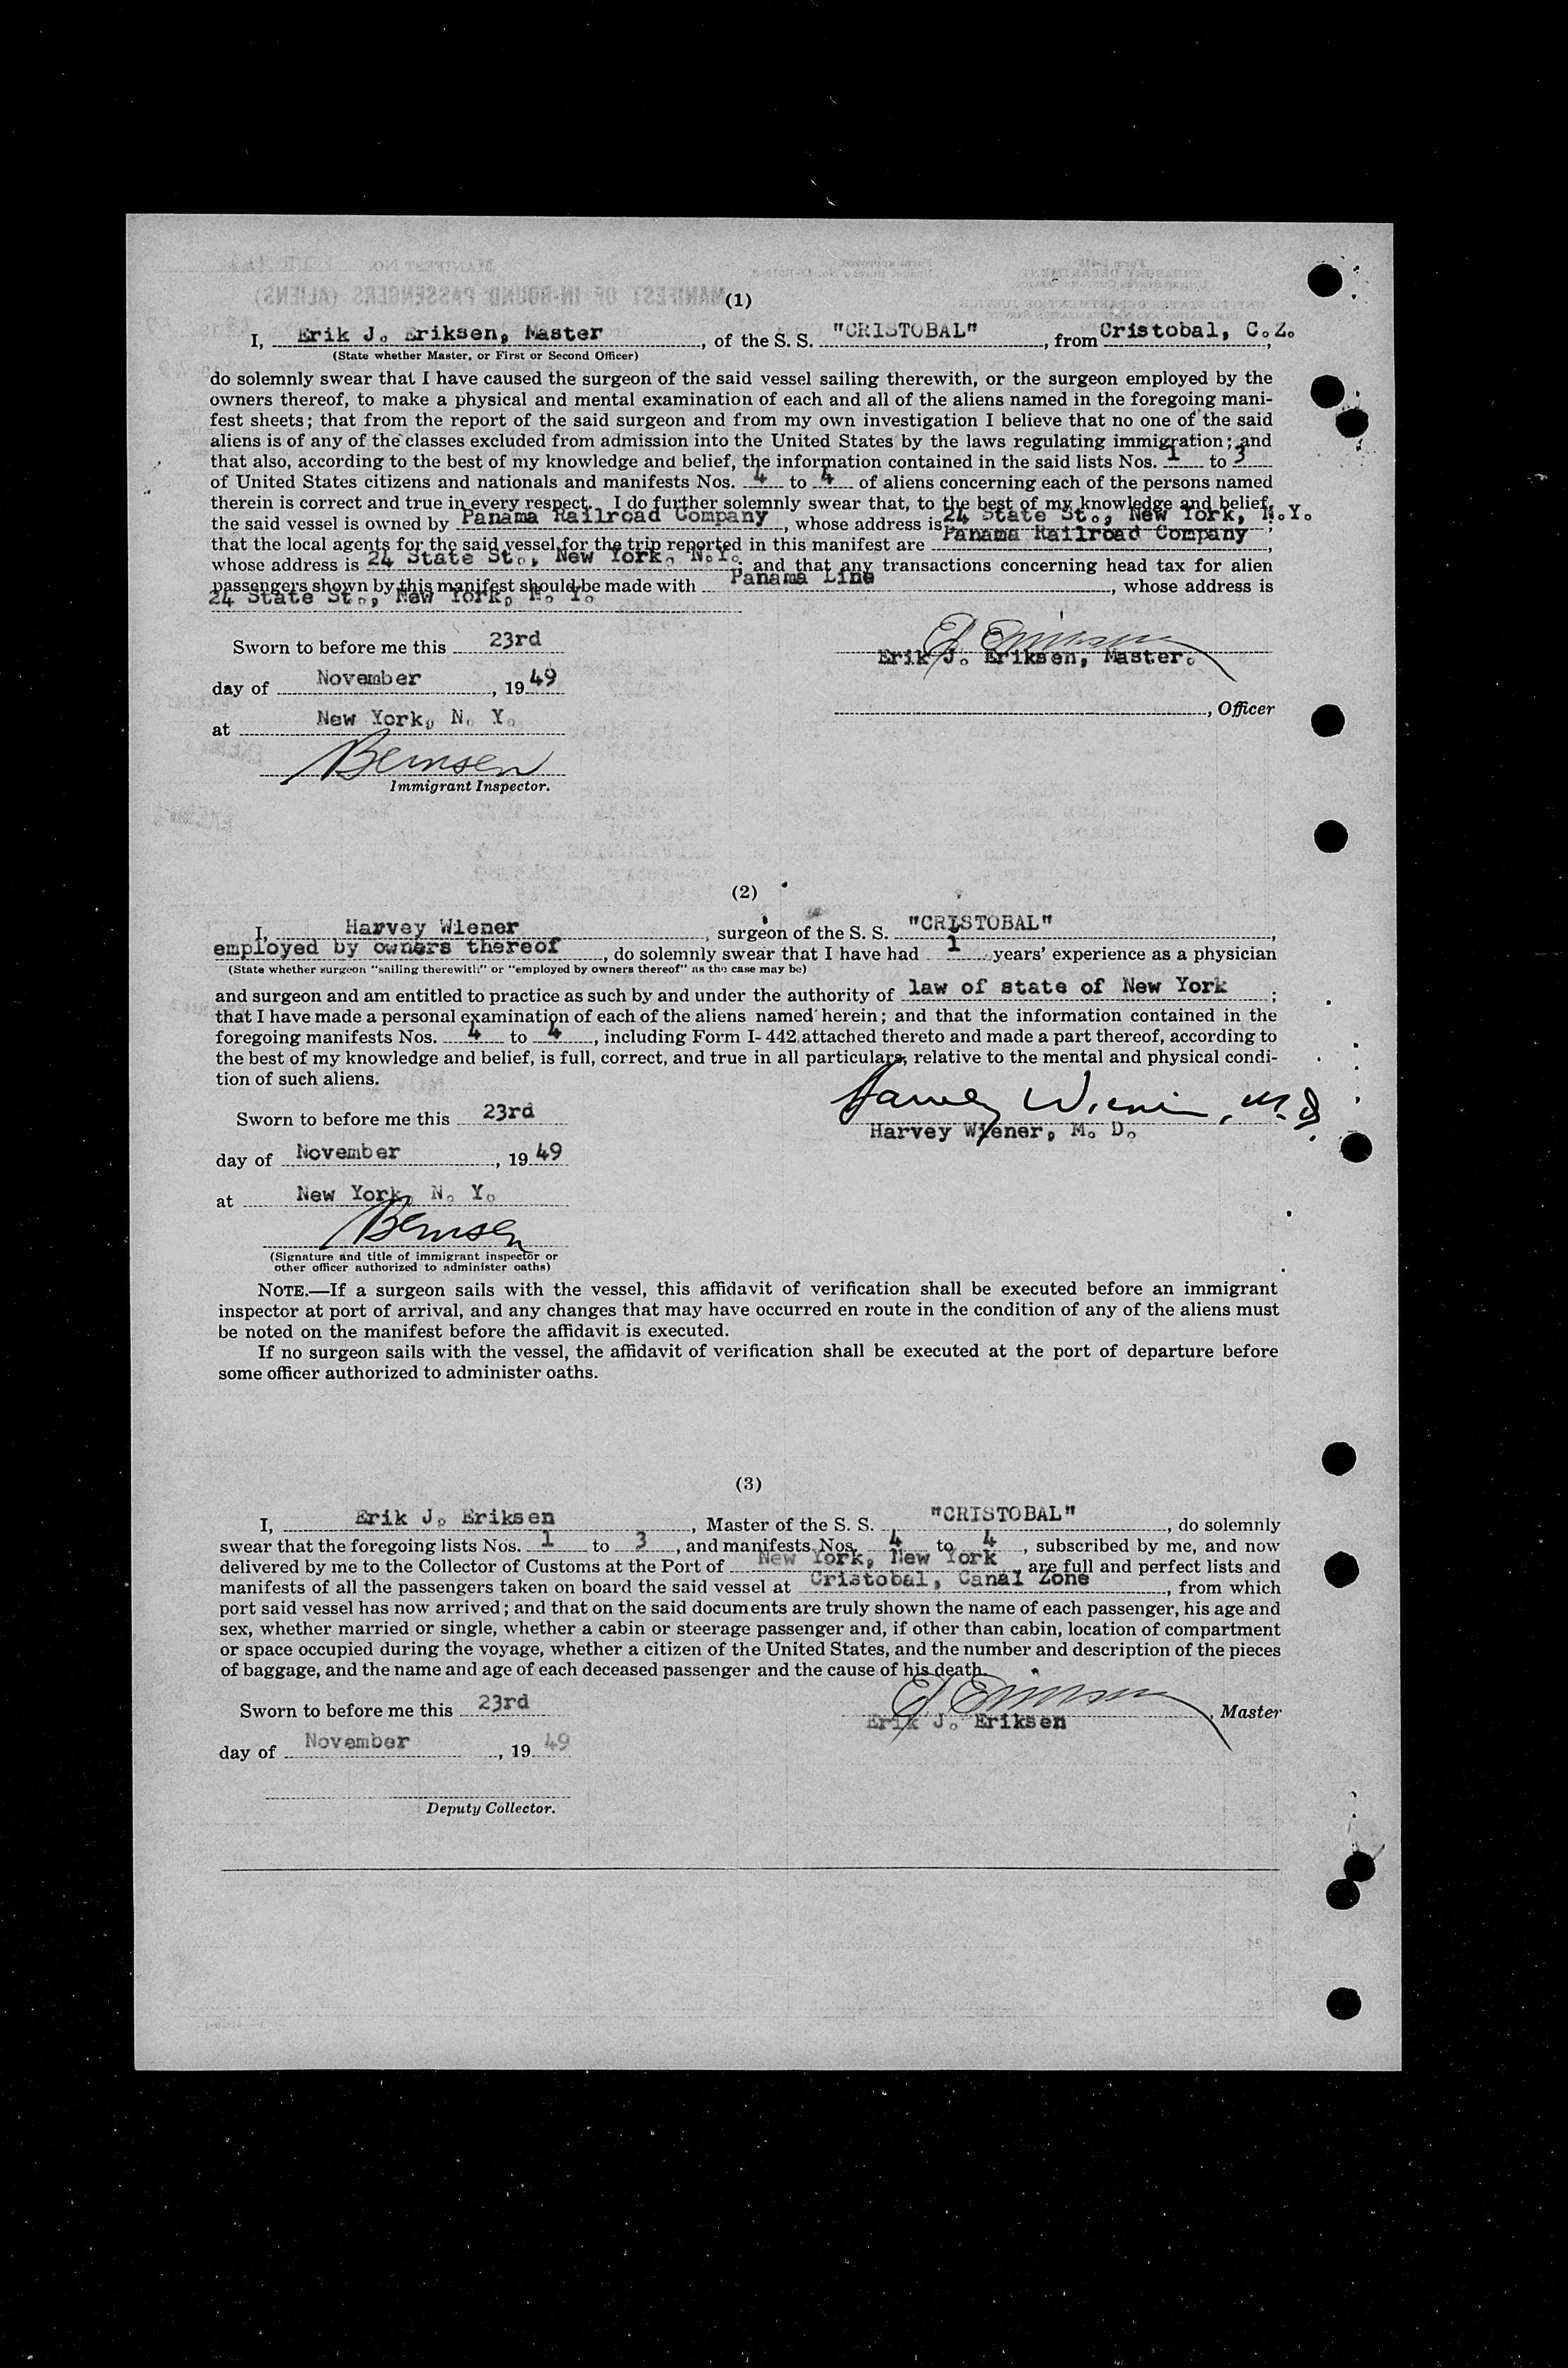 (1)
I, Erik J. Eriksen, Master, of the S. S. "CRISTOBAL", from Cristobal, C.Z.,
(State whether Master, or First or Second Officer)
do solemnly swear that I have caused the surgeon of the said vessel sailing therewith, or the surgeon employed by the
owners thereof, to make a physical and mental examination of each and all of the aliens named in the foregoing mani-
fest sheets; that from the report of the said surgeon and from my own investigation I believe that no one of the said
aliens is of any of the classes excluded from admission into the United States by the laws regulating immigration; and
that also, according to the best of my knowledge and belief, the information contained in the said lists Nos. 1 to 3
of United States citizens and nationals and manifests Nos. 4 to 4 of aliens concerning each of the persons named
therein is correct and true in every respect. I do further solemnly swear that, to the best of my knowledge and belief,
the said vessel is owned by Panama Railroad Company, whose address is 24 State St., New York, N.Y.;
that the local agents for the said vessel for the trip reported in this manifest are Panama Railroad Company,
whose address is 24 State St., New York, N.Y.; and that any transactions concerning head tax for alien
passengers shown by this manifest should be made with Panama Line, whose address is
24 State St., New York, N. Y.
Sworn to before me this 23rd
Erik J. Eriksen, Master.
day of November, 1949
, Officer
at New York, N. Y.
Immigrant Inspector.
(2)
I, Harvey Wiener, surgeon of the S. S. "CRISTOBAL",
employed by owners thereof, do solemnly swear that I have had 1 years' experience as a physician
(State whether surgeon "sailing therewith" or "employed by owners thereof" as the case may be)
and surgeon and am entitled to practice as such by and under the authority of law of state of New York;
that I have made a personal examination of each of the aliens named herein; and that the information contained in the
foregoing manifests Nos. 4 to 4, including Form I-442 attached thereto and made a part thereof, according to
the best of my knowledge and belief, is full, correct, and true in all particulars, relative to the mental and physical condi-
tion of such aliens.
Harvey Wiener, M.D.
Sworn to before me this 23rd
Harvey Wiener, M. D.
day of November, 1949
at New York, N. Y.
(Signature and title of immigrant inspector or
other officer authorized to administer oaths)
NOTE.—If a surgeon sails with the vessel, this affidavit of verification shall be executed before an immigrant
inspector at port of arrival, and any changes that may have occurred en route in the condition of any of the aliens must
be noted on the manifest before the affidavit is executed.
If no surgeon sails with the vessel, the affidavit of verification shall be executed at the port of departure before
some officer authorized to administer oaths.
(3)
I, Erik J. Eriksen, Master of the S. S. "CRISTOBAL", do solemnly
swear that the foregoing lists Nos. 1 to 3, and manifests Nos. 4 to 4, subscribed by me, and now
delivered by me to the Collector of Customs at the Port of New York, New York, are full and perfect lists and
manifests of all the passengers taken on board the said vessel at Cristobal, Canal Zone, from which
port said vessel has now arrived; and that on the said documents are truly shown the name of each passenger, his age and
sex, whether married or single, whether a cabin or steerage passenger and, if other than cabin, location of compartment
or space occupied during the voyage, whether a citizen of the United States, and the number and description of the pieces
of baggage, and the name and age of each deceased passenger and the cause of his death.
Sworn to before me this 23rd
, Master
Erik J. Eriksen
day of November, 1949
Deputy Collector.